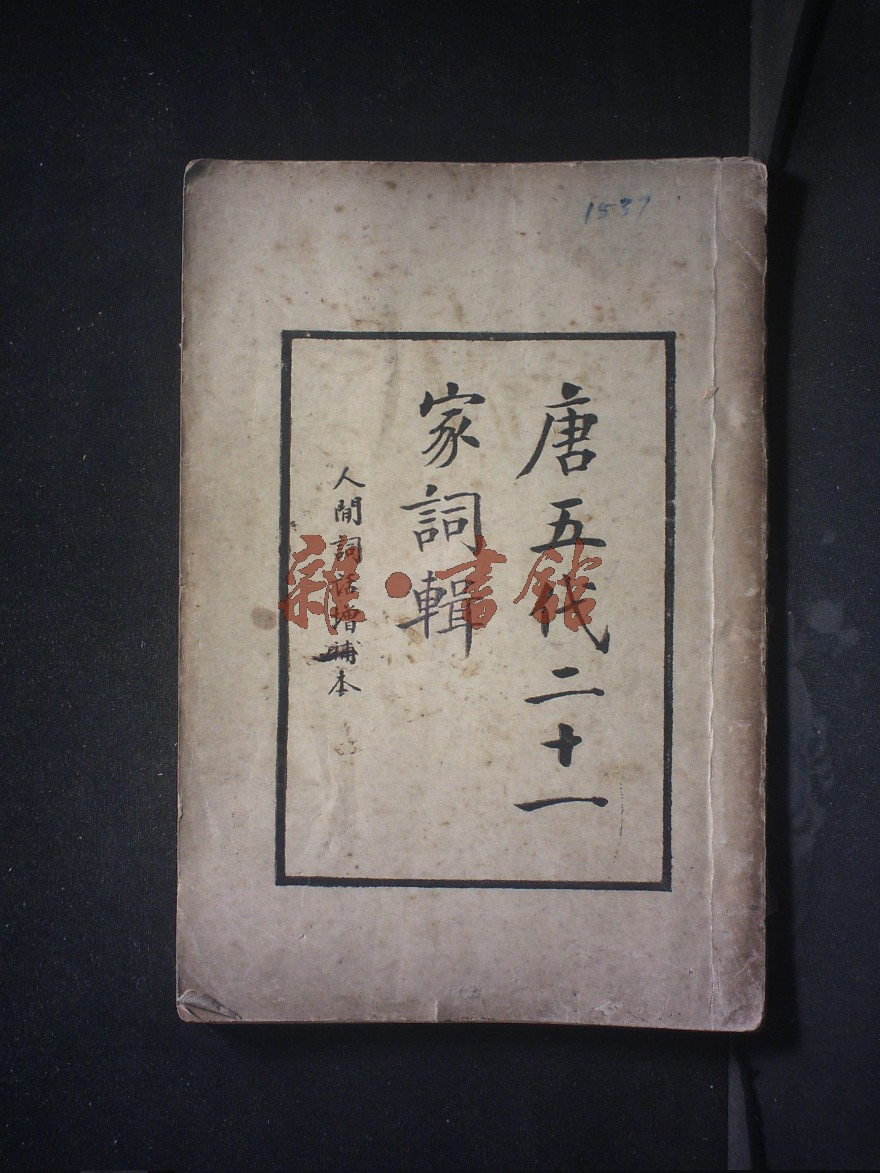 1537
唐五代二十一
家詞輯
人間詞話增補本
雜·書館